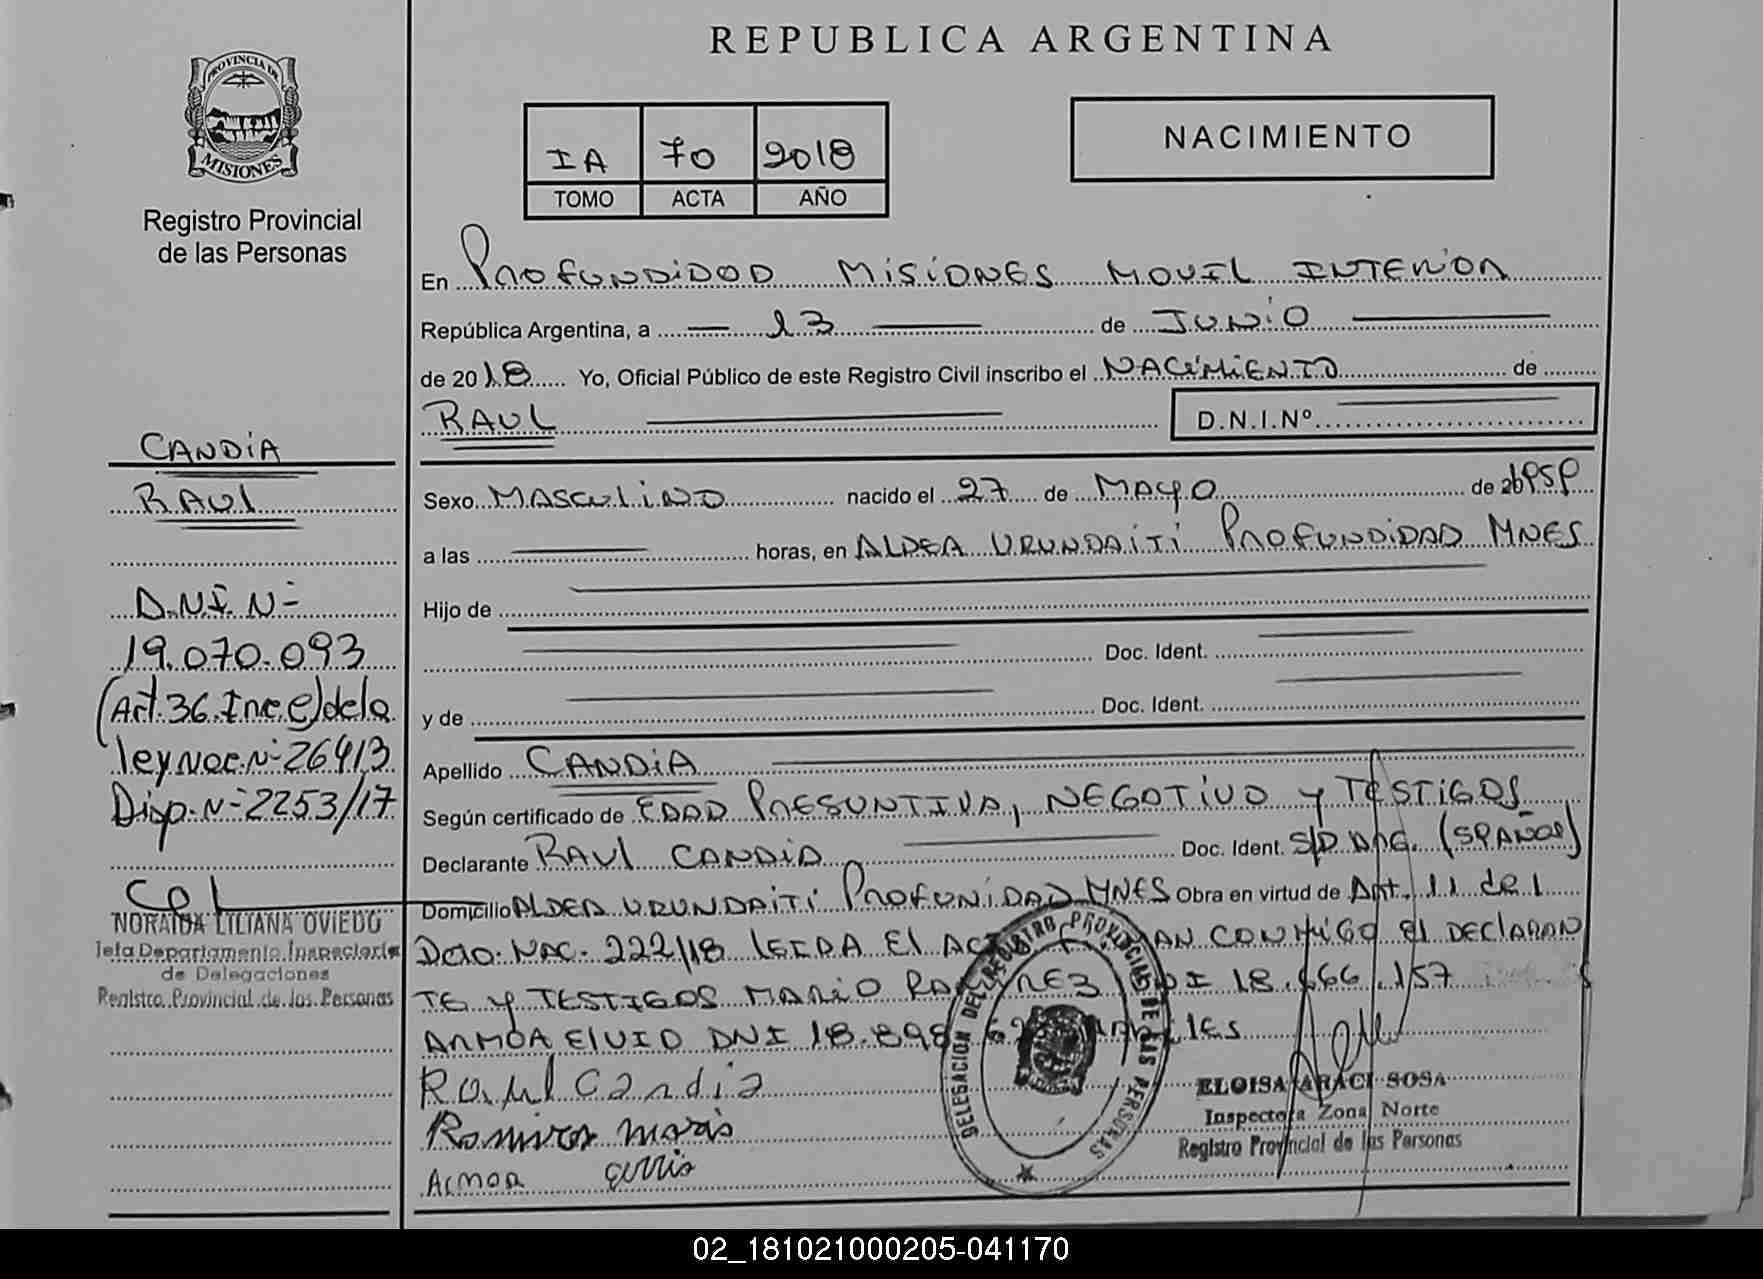 REPUBLICA ARGENTINA
PROVINCIA DE
MISIONES
Registro Provincial
de las Personas
IA 70 2018
TOMO ACTA AÑO
NACIMIENTO
En Profundidod Misiones Movil Interior
República Argentina, a 13 de Junio
de 2018 Yo, Oficial Público de este Registro Civil inscribo el Nacimiento de
RAUL D.N.I.Nº
CANDIA
RAUL
D.N.I. N-
19.070.093
(Art. 36 Inc. e) de la
ley Nac. N- 26413
Disp. N- 2253/17
NORAIDA LILIANA OVIEDO
Jefa Departamento Inspectoria
de Delegaciones
Registro Provincial de las Personas
Sexo Masculino nacido el 27 de Mayo de
a las horas, en Aldea Urundaiti Profundidad Mnes
Hijo de
Doc. Ident.
y de Doc. Ident.
Apellido CANDIA
Según certificado de Edad Presuntiva, Negotivo y Testigos
Declarante Raul Candia Doc. Ident. S/D
Domicilio Aldea Urundaiti Profunidad Mnes Obra en virtud de Art. 11 del
Dcto. Nac. 222/18 leida el conmigo el declaran
te y testigos Mario 18.666.157
Armoa Eluid DNI 18.898
Raul Candia
Ramirez
Armoa
DELEGACION DEL REGISTRO PROVINCIAL DE LAS PERSONAS
ELOISA ARACI SOSA
Inspectora Zona Norte
Registro Provincial de las Personas
02_181021000205-041170